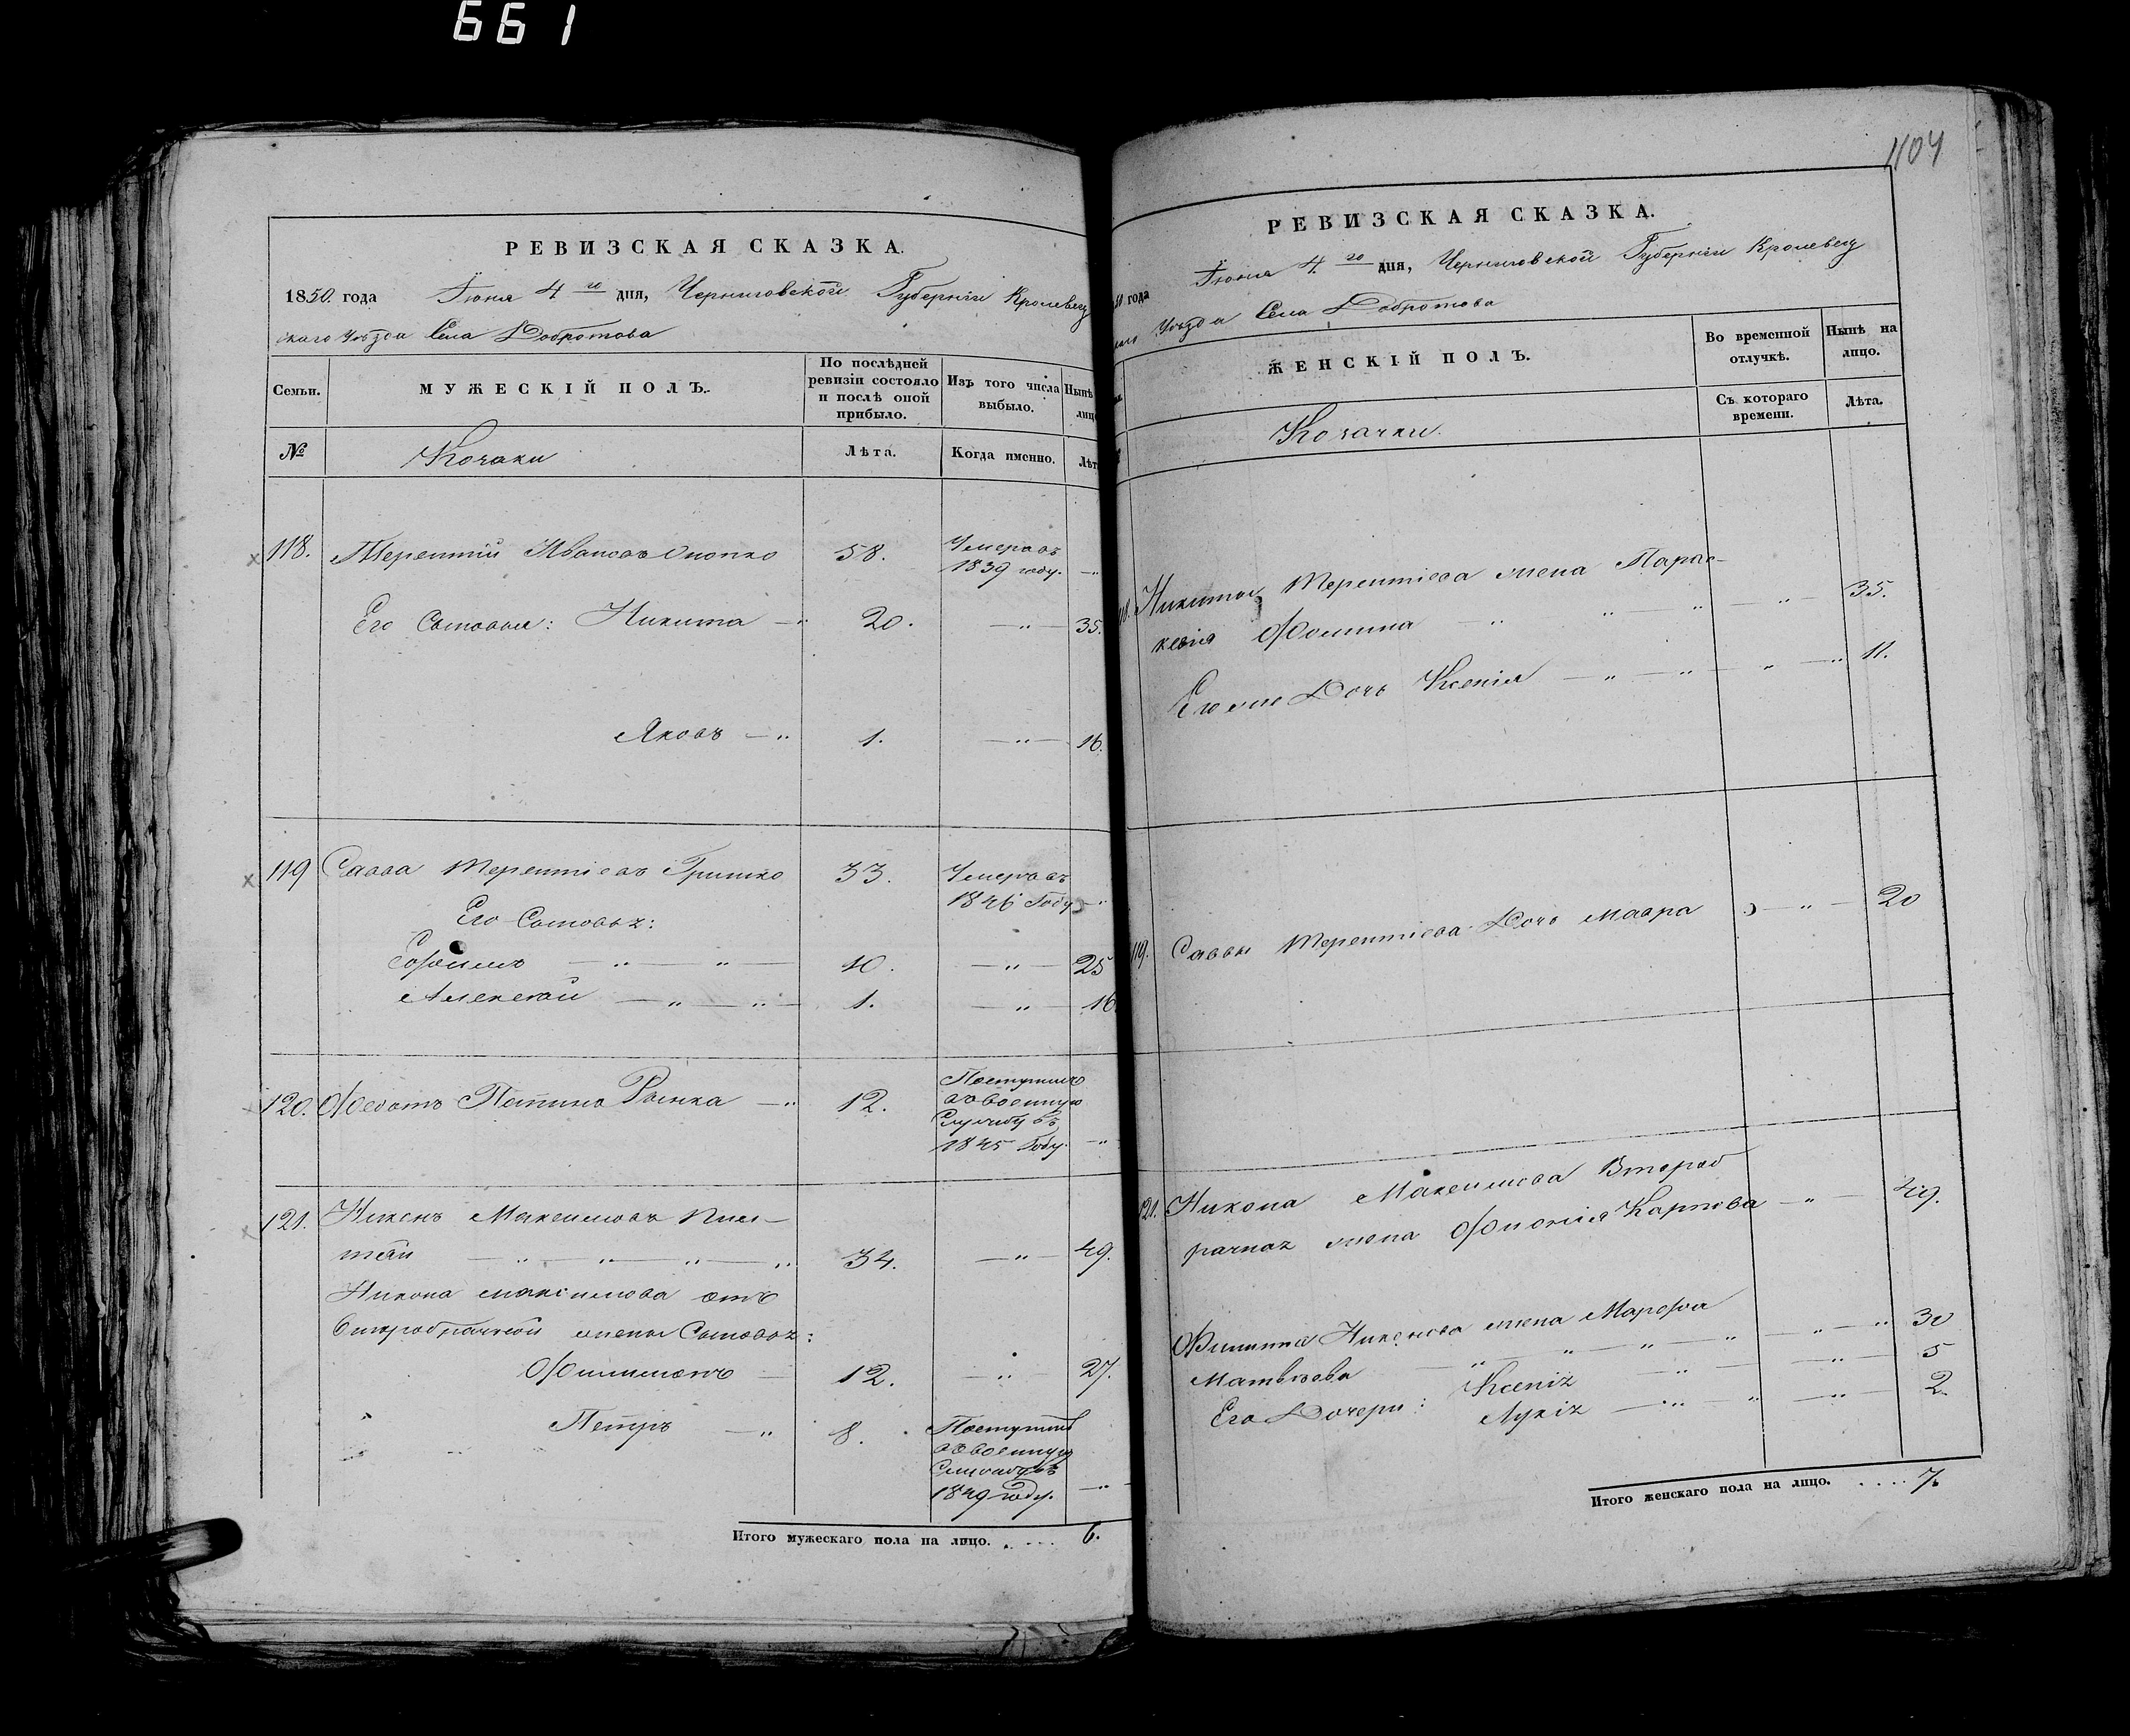 661
РЕВИЗСКАЯ СКАЗКА.
1850. года Іюня 4 го дня, Черниговской Губерніи Кролевец
скаго Уѣзда Села Добротова
Семьи.
МУЖЕСКІЙ ПОЛЪ.
По послѣдней
ревизіи состояло
и послѣ оной
прибыло.
Изъ того числа
выбыло.
Нынѣ
лицо
№
Козаки
Лѣта.
Когда именно.
Лѣт
118. Терентій Ивановъ 58. Умеръ въ
1839 году. — „
Его Сыновья: Никита — „ 20. — „ — 35.
Яковъ — „ 1. — „ — 16.
119 Савва Терентіевъ Гришко 33. Умеръ въ
1846 Году — „
Его Сыновья:
Ефимъ — „ — „ — 10. — „ — 25
Алексѣй — „ — „ — 1. — „ — 16
120. Ѳедотъ — „ 12. Поступилъ
въ военную
Службу въ
1845 Году. — „
121. Никонъ Максимовъ
— „ — „ — „ — „ 34. — „ — 49.
Никона Максимова отъ
второбрачной жены Сыновья:
Филимонъ — 12. — „ — 27.
Петръ — „ 8. Поступилъ
въ военную
Службу въ
1849 году. — „ —
Итого мужескаго пола на лицо. . . . . 6.
1104
РЕВИЗСКАЯ СКАЗКА.
50 года Іюня 4 го дня, Черниговской Губерніи Кролевец
Уѣзда Села Добротова
ЖЕНСКІЙ ПОЛЪ.
Во временной
отлучкѣ.
Нынѣ на
лицо.
Съ котораго
времени.
Лѣта.
Козачки.
118. Никиты Терентіева жена Парас-
кевія Фомина — „ — „ — „ — „ — 35.
Его же Дочь Ксенія — „ — „ — „ — „ 11.
119. Саввы Терентіева Дочь Мавра — „ — 20
121. Никона Максимова Второб
рачная жена Карпова — „ — 49.
Никонова жена Марѳа
Матвѣева — „ — „ — „ — „ — „ — „ 30
Его Дочери: Ксенія — „ — „ — 5
Лукія — „ — „ — „ — 2.
Итого женскаго пола на лицо. . . . . 7.